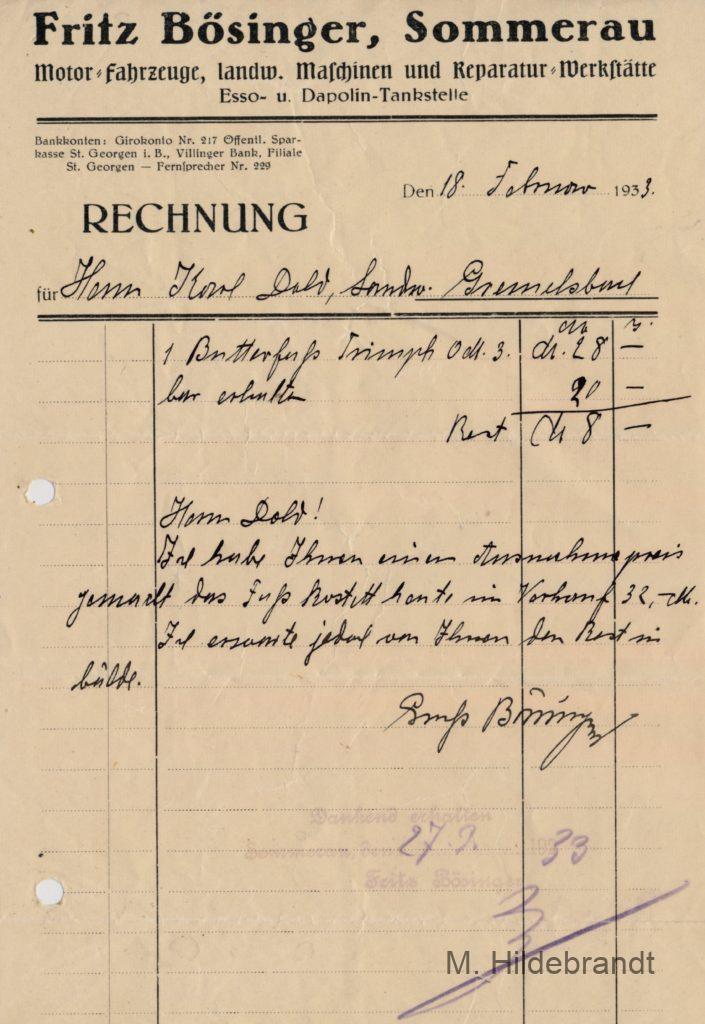 Fritz Bösinger, Sommerau
Motor-Fahrzeuge, landw. Maschinen und Reparatur-Werkstätte
Esso- u. Dapolin-Tankstelle
Bankkonten: Girokonto Nr. 217 Öffentl. Spar-
kasse St. Georgen i. B., Villinger Bank, Filiale
St. Georgen — Fernsprecher Nr. 229
Den 18. Februar 1933.
RECHNUNG
für Herrn Karl Dold, Landw. Gremelsbach
1 Butterfass Triumph No. 3. M. 28 —
bar erhalten 20 —
Rest M 8 —
Herrn Dold!
Ich habe Ihnen einen Ausnahmepreis
gemacht das Fass kostett heute im Verkauf 32,- M.
Ich erwarte jedoch von Ihnen den Rest in
bälde.
Gruß Bösinger
Dankend erhalten
Sommerau, den 27. 1933
Fritz Bösinger
M. Hildebrandt